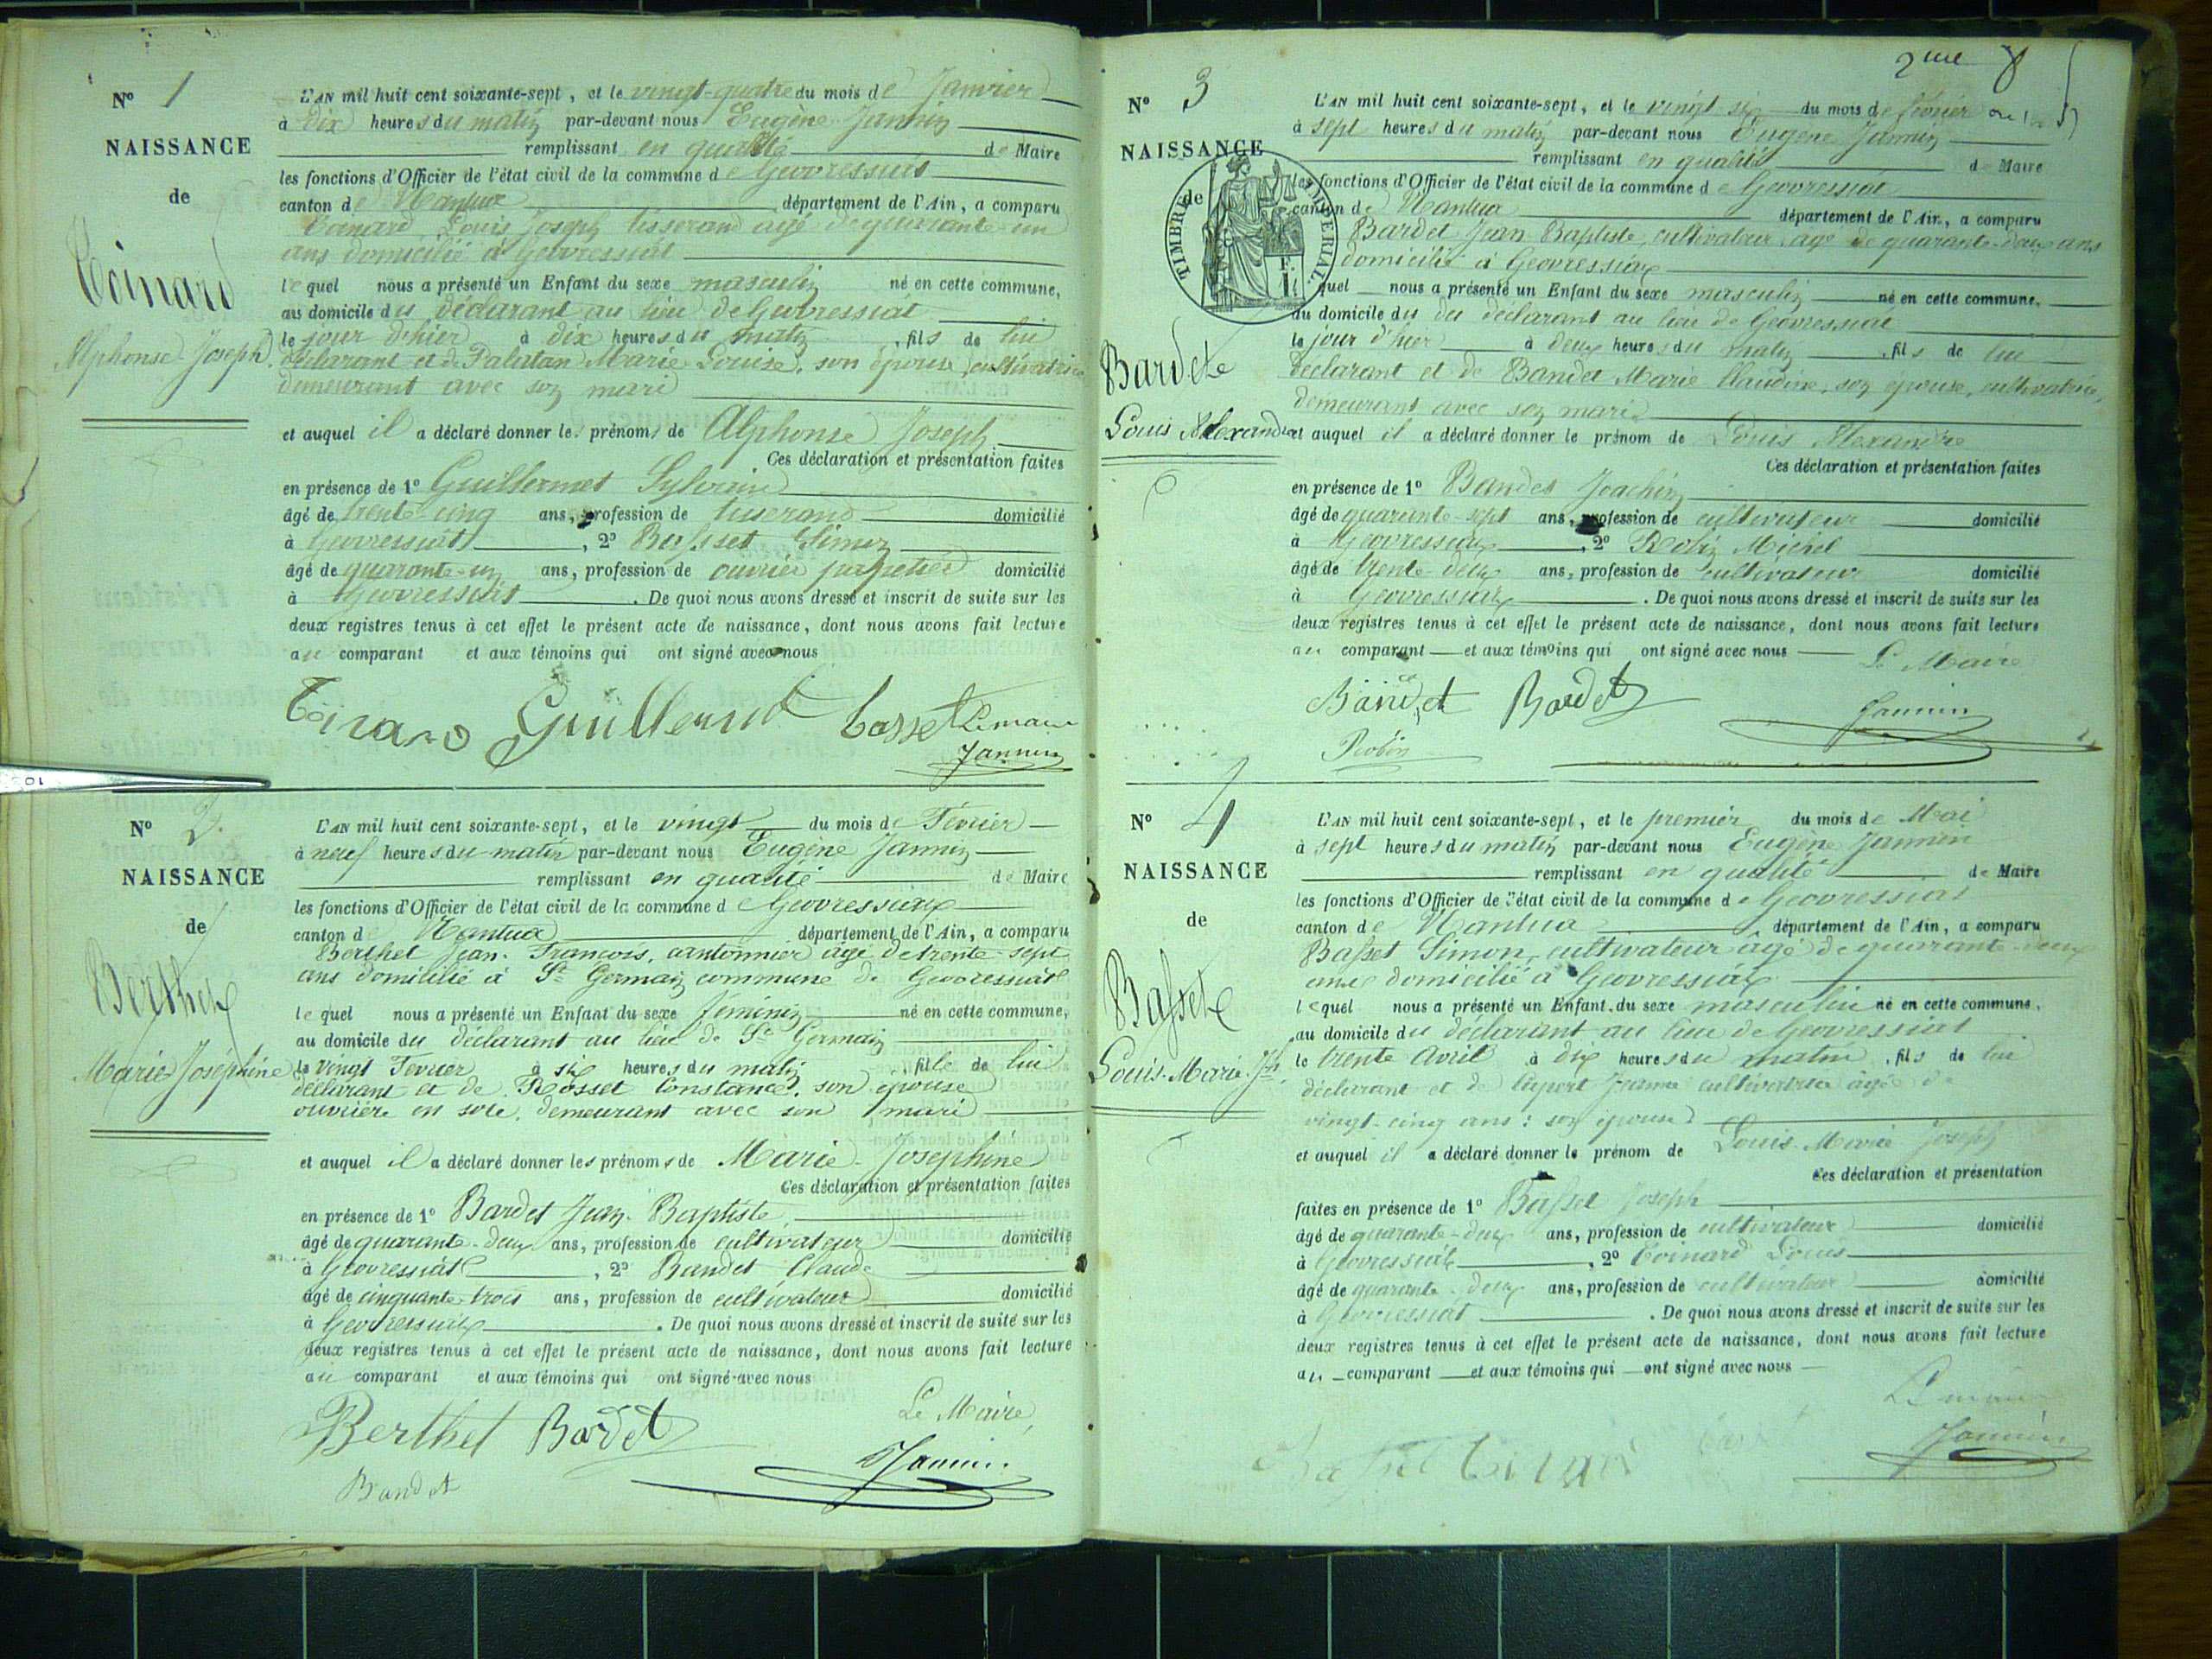 Nº 1
NAISSANCE
de
Coinard
Alphonse Joseph
L'AN mil huit cent soixante-sept, et le vingt-quatre du mois de Janvier
à dix heures du matin par-devant nous Eugène Jannin
remplissant en qualité de Maire
les fonctions d'Officier de l'état civil de la commune de Geovressiat
canton de Nantua département de l'Ain, a comparu
Coinard Louis Joseph tisserand agé de quarante-un
ans domicilié à Geovressiat
lequel nous a présenté un Enfant du sexe masculin né en cette commune,
au domicile du déclarant au lieu de Geovressiat
le jour d'hier à dix heures du matin, fils de lui
déclarant et de Palutan Marie Louise, son épouse, cultivatrice
demeurant avec son mari
et auquel il a déclaré donner les prénoms de Alphonse Joseph
Ces déclaration et présentation faites
en présence de 1º Guillermet Sylvain
âgé de trente-cinq ans, profession de tisserand domicilié
à Geovressiat, 2º Basset Simon
âgé de quarante-un ans, profession de ouvrier papetier domicilié
à Geovressiat. De quoi nous avons dressé et inscrit de suite sur les
deux registres tenus à cet effet le présent acte de naissance, dont nous avons fait lecture
au comparant et aux témoins qui ont signé avec nous
Coinard Guillermet basset Le maire
Jannin
Nº 2.
NAISSANCE
de
Berthet
Marie Joséphine
L'AN mil huit cent soixante-sept, et le vingt du mois de Février
à neuf heures du matin par-devant nous Eugène Jannin
remplissant en qualité de Maire
les fonctions d'Officier de l'état civil de la commune de Geovressiat
canton de Nantua département de l'Ain, a comparu
Berthet Jean-François, cantonnier âgé de trente-sept
ans domicilié à St Germain commune de Geovressiat
lequel nous a présenté un Enfant du sexe féminin né en cette commune,
au domicile du déclarant au lieu de St Germain
le vingt Fevrier à six heures du matin, fille de lui
déclarant et de Rosset Constance, son épouse
ouvrière en soie, demeurant avec son mari
et auquel il a déclaré donner les prénoms de Marie-Joséphine
Ces déclaration et présentation faites
en présence de 1º Bardet Jean-Baptiste,
âgé de quarante-deux ans, profession de cultivateur domicilié
à Geovressiat, 2º Bandet Claude
âgé de cinquante-trois ans, profession de cultivateur domicilié
à Geovressiat. De quoi nous avons dressé et inscrit de suite sur les
deux registres tenus à cet effet le présent acte de naissance, dont nous avons fait lecture
au comparant et aux témoins qui ont signé avec nous
Le Maire
Berthet Bardet
Jannin
Bandet
2me
Nº 3
NAISSANCE
de
TIMBRE IMPERIAL
Bardet
Louis Alexandre
L'AN mil huit cent soixante-sept, et le vingt six du mois de février
à sept heures du matin par-devant nous Eugène Jannin
remplissant en qualité de Maire
les fonctions d'Officier de l'état civil de la commune de Geovressiat
canton de Nantua département de l'Ain, a comparu
Bardet Jean-Baptiste, cultivateur, agé de quarante-deux ans
domicilié à Geovressiat
quel nous a présenté un Enfant du sexe masculin né en cette commune,
au domicile du du déclarant au lieu de Geovressiat
le jour d'hier à deux heures du matin, fils de lui
déclarant et de Bandet Marie Claudine, son épouse, cultivatrice,
demeurant avec son mari
et auquel il a déclaré donner le prénom de Louis Alexandre
Ces déclaration et présentation faites
en présence de 1º Bandet Joachin
âgé de quarante-sept ans, profession de cultivateur domicilié
à Geovressiat, 2º Robin Michel
âgé de trente-deux ans, profession de cultivateur domicilié
à Geovressiat. De quoi nous avons dressé et inscrit de suite sur les
deux registres tenus à cet effet le présent acte de naissance, dont nous avons fait lecture
au comparant et aux témoins qui ont signé avec nous
Le Maire
Bandet Bardet
Jannin
Robin
Nº 4
NAISSANCE
de
Basset
Louis-Marie-Jh
L'AN mil huit cent soixante-sept, et le premier du mois de Mai
à sept heures du matin par-devant nous Eugène Jannin
remplissant en qualité de Maire
les fonctions d'Officier de l'état civil de la commune de Geovressiat
canton de Nantua département de l'Ain, a comparu
Basset Simon, cultivateur âgé de quarante-deux
ans domicilié à Geovressiat
lequel nous a présenté un Enfant du sexe masculin né en cette commune,
au domicile du déclarant au lieu de Geovressiat
le trente Avril à dix heures du matin, fils de lui
déclarant et de cultivatrice âgée de
vingt-cinq ans: son épouse
et auquel il a déclaré donner le prénom de Louis-Marie Joseph
Ces déclaration et présentation
faites en présence de 1º Basset Joseph
âgé de quarante-deux ans, profession de cultivateur domicilié
à Geovressiat, 2º Coinard Louis
âgé de quarante-deux ans, profession de cultivateur domicilié
à Geovressiat. De quoi nous avons dressé et inscrit de suite sur les
deux registres tenus à cet effet le présent acte de naissance, dont nous avons fait lecture
au comparant et aux témoins qui ont signé avec nous
Le maire
Jannin